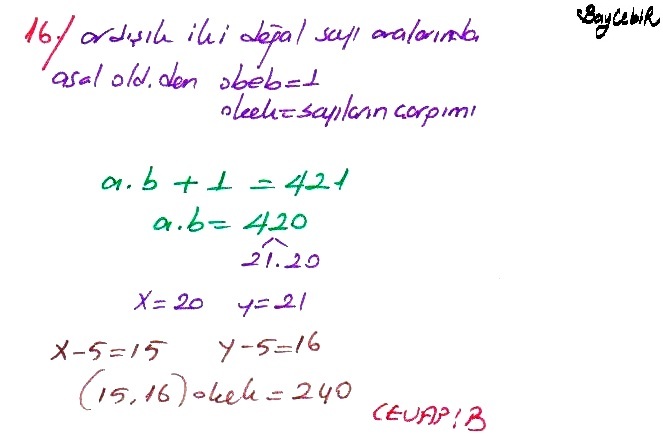 BayCebiR
16-) ardışık iki doğal sayı aralarında
asal old.den obeb=1
okek=sayıların çarpımı
a.b + 1 = 421
a.b= 420
21.20
x=20 y=21
x-5=15 y-5=16
(15,16)okek=240
CEVAP:B